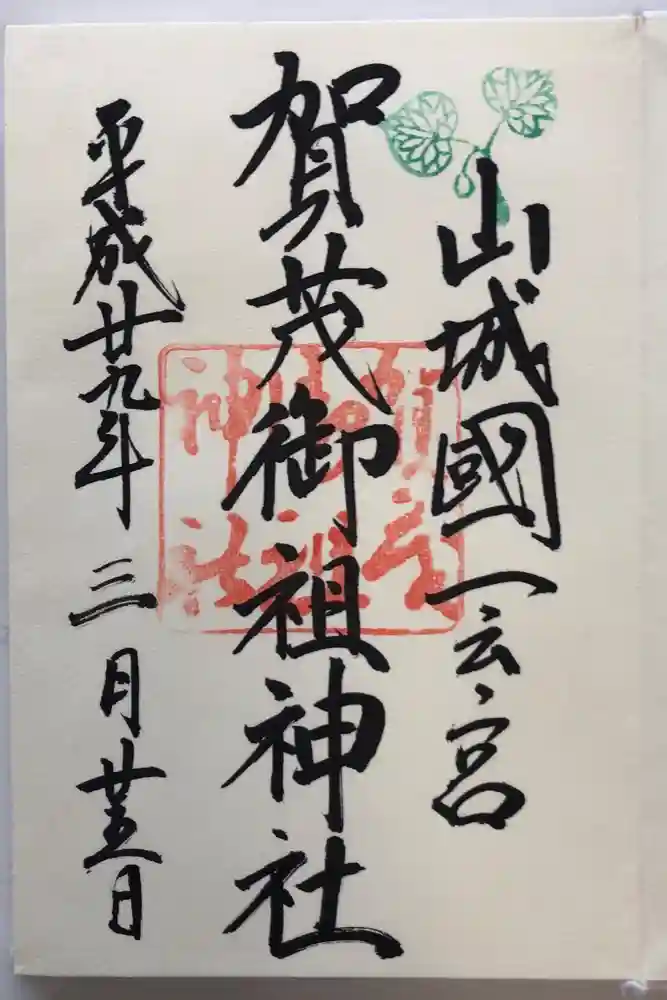 山城國一之宮
賀茂御祖神社
平成廿九年三月廿五日
賀茂
御祖
神社